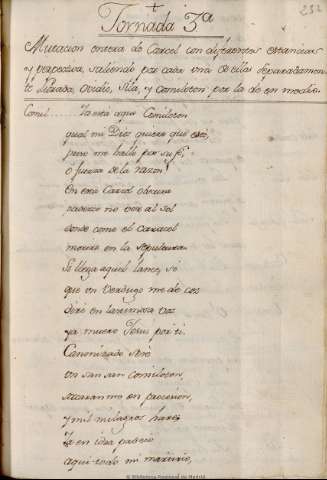 232
Jornada 3ª
Mutacion entera de Carcel con diferentes estancias
y perspectiva, saliendo por cada una de ellas separadamen-
te Librada, Ovidio, Sila, y Comiloton por la de en medio.
Comil..... Ya está aqui Comiloton
qual mi Dios quiere que esté,
pues me hallo por su fe,
ó fuerza de la razon!
En esta Carcel obscura
padezco no ver al Sol
donde como el caracol
moriré en la sepultura.
Si llega aquel lance, si
que un Verdugo me de cos
diré en lastimosa voz
ya muero Jesus por ti.
Canonizado seré
un san san Comiloton,
sacaranme en procesion,
y mil milagros haré;
Ya en idea padezco
aqui todo mi martirio,
Biblioteca Nacional de Madrid